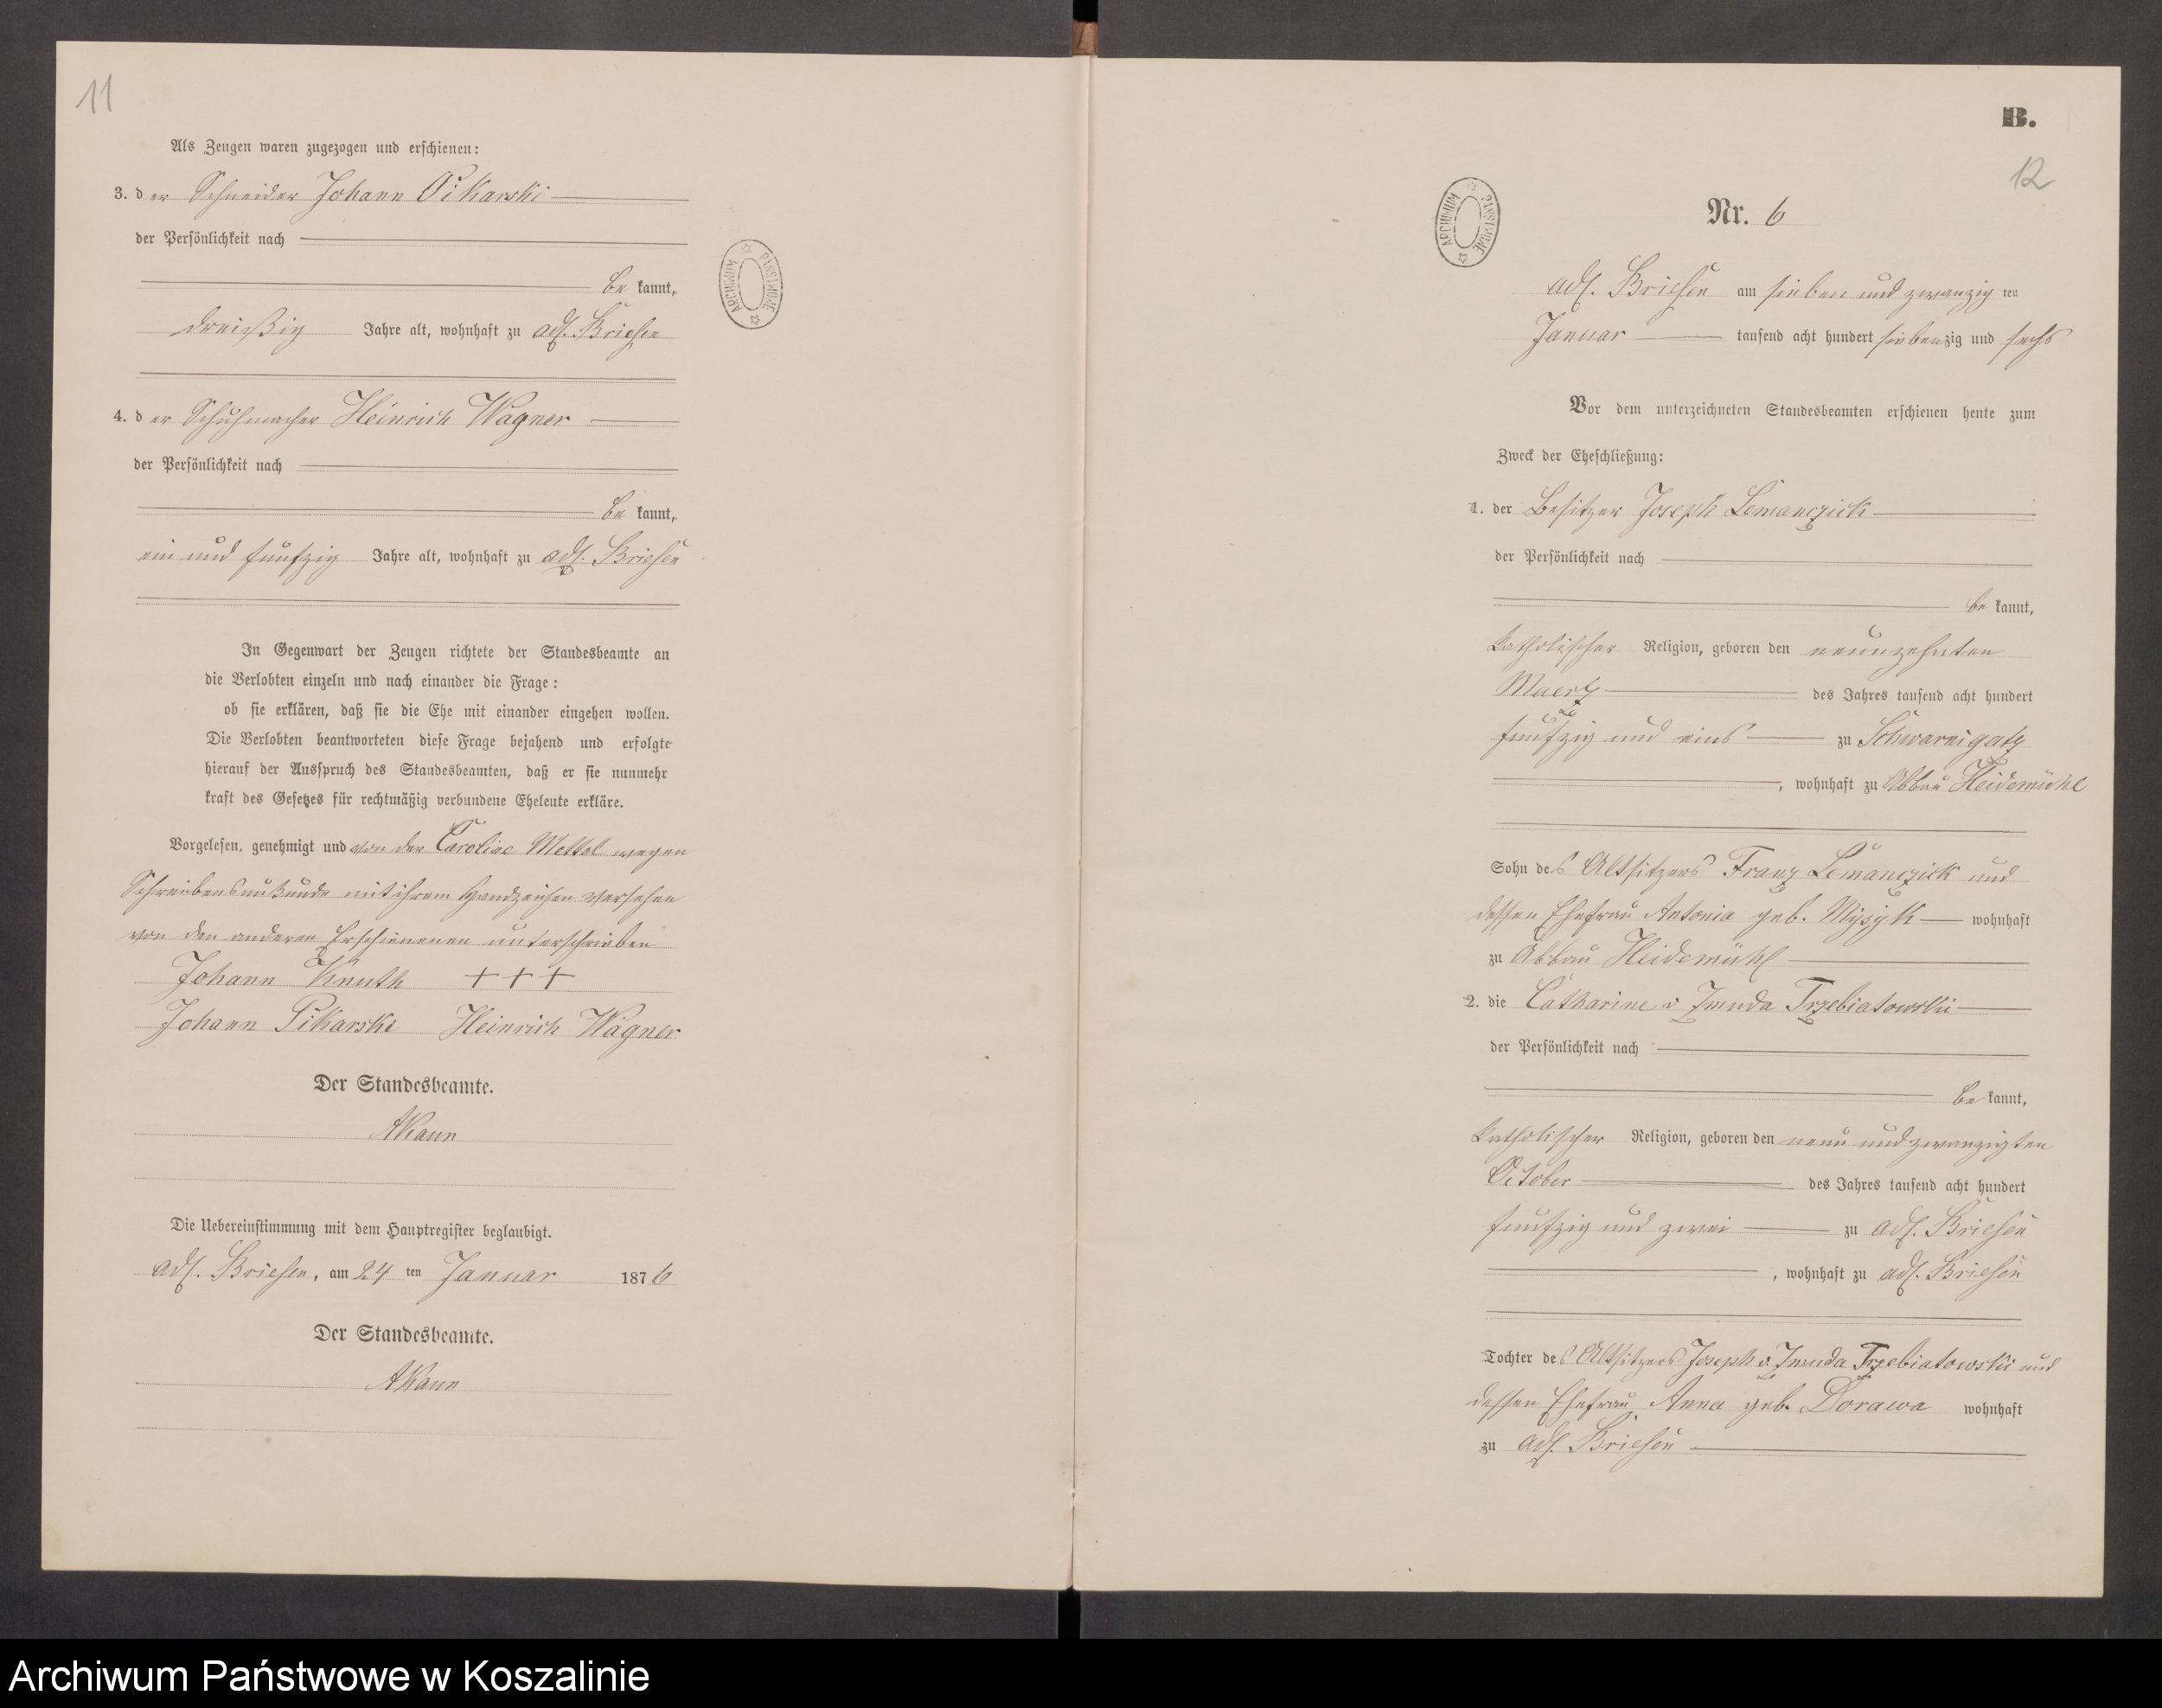 11
Als Zeugen waren zugezogen und erschienen:
3. der Schneider Johann Pikarski
der Persönlichkeit nach
be kannt,
dreißig Jahre alt, wohnhaft zu adl. Briesen
4. der Schuhmacher Heinrich Wagner
der Persönlichkeit nach
be kannt,
ein und fünfzig Jahre alt, wohnhaft zu adl. Briesen
In Gegenwart der Zeugen richtete der Standesbeamte an
die Verlobten einzeln und nach einander die Frage:
ob sie erklären, daß sie die Ehe mit einander eingehen wollen.
Die Verlobten beantworteten diese Frage bejahend und erfolgte
hierauf der Ausspruch des Standesbeamten, daß er sie nunmehr
kraft des Gesetzes für rechtmäßig verbundene Eheleute erkläre.
Vorgelesen, genehmigt und von der Caroline Mettel wegen
Schreibensunkunde mit ihrem Handzeichen versehen
von den anderen Erschienenen unterschrieben
Johann Knuth +++
Johann Pikarski Heinrich Wagner
Der Standesbeamte.
AKaun
Die Uebereinstimmung mit dem Hauptregister beglaubigt.
adl. Briesen, am 24 ten Januar 1876
Der Standesbeamte.
AKaun
ARCHIWUM PAŃSTWOWE
B.
12
ARCHIWUM PAŃSTWOWE
Nr. 6
adl. Briesen am sieben und zwanzig ten
Januar tausend acht hundert siebenzig und sechs
Vor dem unterzeichneten Standesbeamten erschienen heute zum
Zweck der Eheschließung:
1. der Besitzer Joseph Lemanczick
der Persönlichkeit nach
be kannt,
katholischer Religion, geboren den neunzehnten
Maerz des Jahres tausend acht hundert
fünfzig und eins zu Schwarnigatz
, wohnhaft zu Abbau Heidemühl
Sohn des Altsitzers Franz Lemanczick und
dessen Ehefrau Antonia geb. wohnhaft
zu Abbau Heidemühl
2. die Catharine v Zmuda Trzebiatowski
der Persönlichkeit nach
be kannt,
katholischer Religion, geboren den neun und zwanzigsten
October des Jahres tausend acht hundert
fünfzig und zwei zu adl. Briesen
, wohnhaft zu adl. Briesen
Tochter des Altsitzers Joseph v. Zmuda Trzebiatowski und
dessen Ehefrau Anna geb. Dorawa wohnhaft
zu adl. Briesen
Archiwum Państwowe w Koszalinie